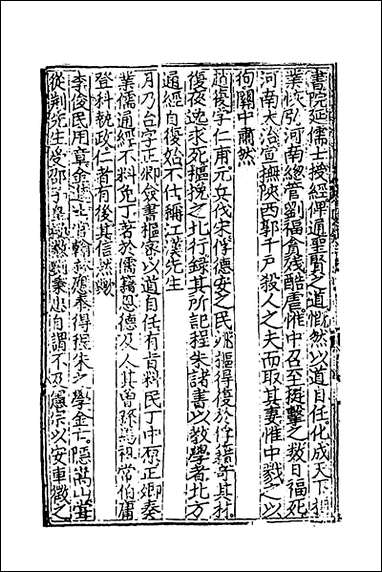 書院延儒士授經俾通聖賢之道慨然以道自任化成天下
業恢弘河南總管劉福貪殘酷虐惟中召至挺擊之數日福死
河南大治宣撫陝西郭千戶殺人之夫而取其妻惟中戮之以
狥關中肅然
趙復字仁甫元兵伐宋俘德安之民姚樞得復於俘籍奇其材
復夜逃求死樞挽之北行錄其所記程朱諸書以教學者北方
通經自復始不仕稱江漢先生
月乃合字正卿僉書樞家以道自任有旨料民丁中原正卿奏
業儒通經不料免丁著於儒籍恩德及人其曾孫馬祖常伯庸
登科執政仁者有後其信然歟
李俊民用章金進士官翰林應奉得程朱之學金亡隱嵩山
從荆先生受邵子皇極數劉秉忠自謂不及憲宗以安車徵之